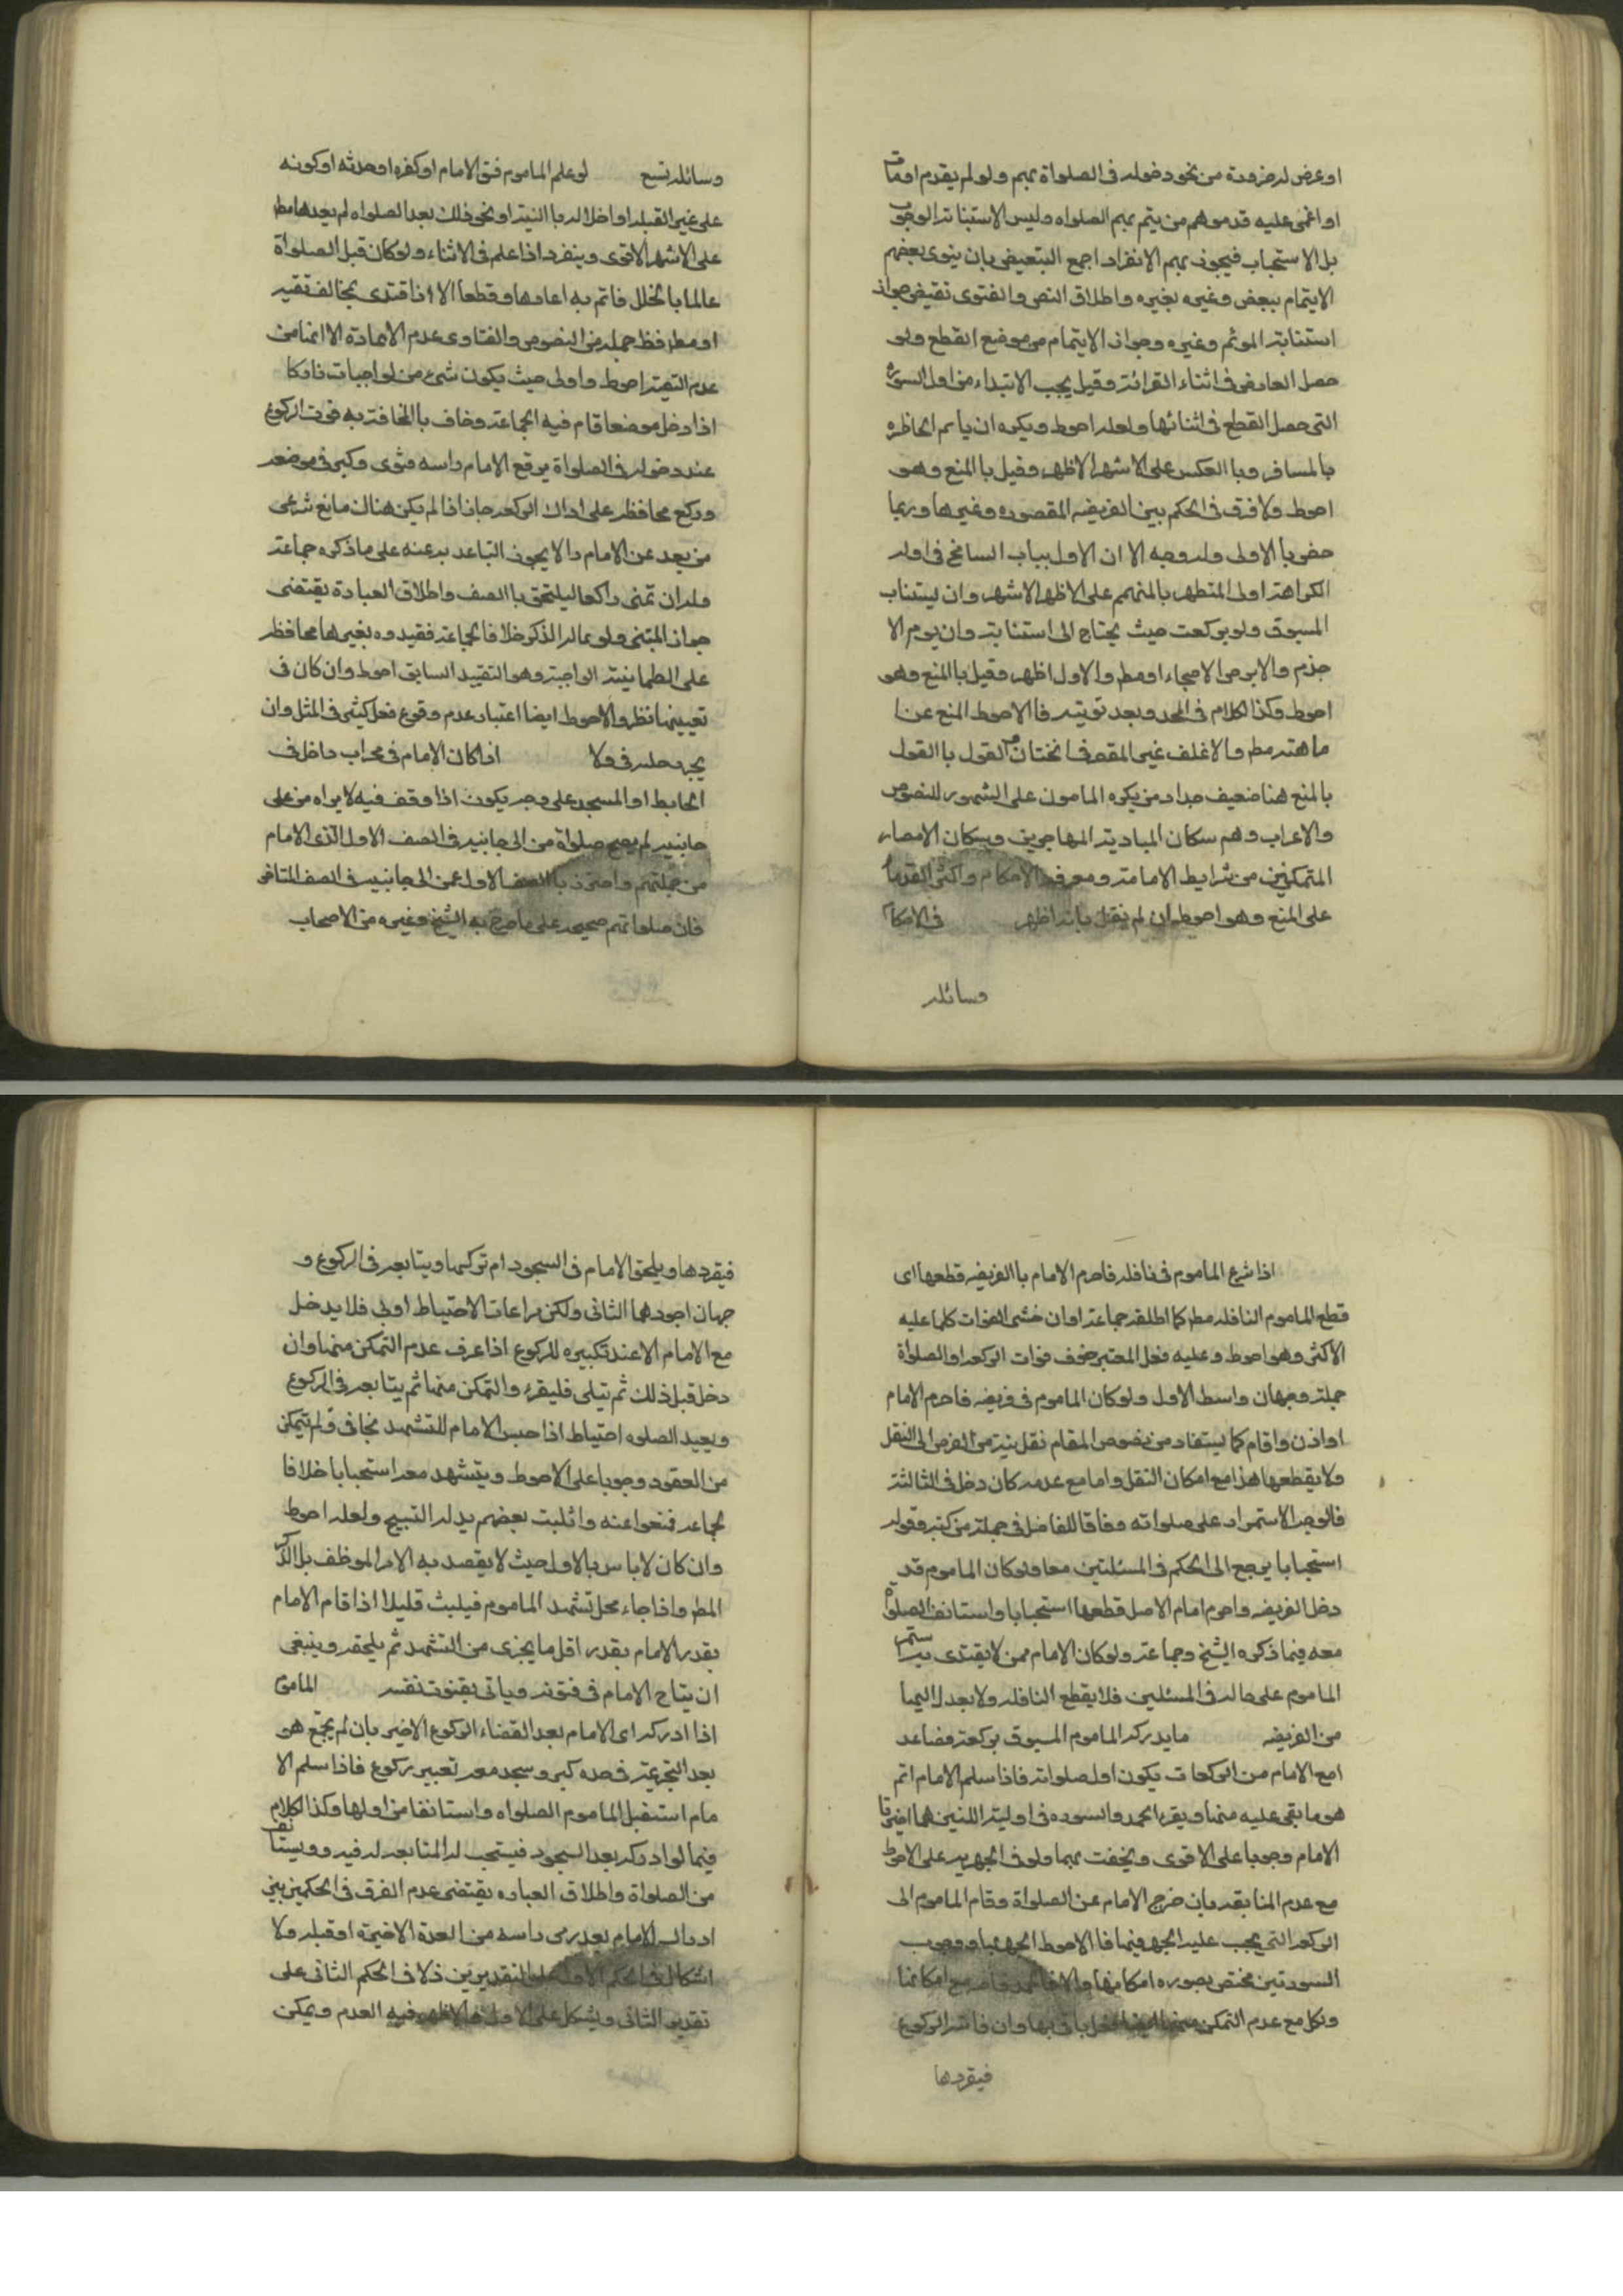 او عرض له ضرورة من نحو دخوله في الصلواة بهم ولو لم يقدم او مات
او اغمى عليه قدموا هم من يتم بهم الصلواه وليس الاستبنا تر الوجوب
بل الاستحباب فيجوز بهم الانفراد اجمع التبعيض بان ينوى بعضهم
الايتمام ببعض وغيره بغيره واطلاق النص والفتوى تقيض جواز
استنابته الموثم وغيره وجواز الايتمام من موضع القطع ولو
حصل العارض في اثناء القرائة وقيل يجب الابتداء من اول السورة
التي حصل القطع في اثنائها ولعله احوط ويكره ان ياتم الحاظره
بالمسافر وبا العكس على الاشهر الاظهر وقيل با المنع وهو
احوط ولا فرق في الحكم بين الفريضه المقصوره وغيرها وربما
خص با الاولى وله وجه الا ان الاول بباب التسامح في اوله
الكراهة اولى المتطهر بالمتيمم على الاظهر الاشهر وان يستناب
المسبوق ولو بركعت حيث يحتاج الى استنابته وان يوم الا
جذم والابرص الاصحاء او مط والاول اظهر وقيل با المنع وهو
احوط وكذا الكلام في الحد وبعد توبته فا الاحوط المنع عن
ما هته مط والاغلف غير المقصر في الختان القول با القول
بالمنع هنا ضعيف جدا ومن يكره المامون على الشهور للنصوص
والاعراب وهم سكان البادية المهاجرين وبسكان الامصار
المتمكنين من شرايط الامامة ومعرفة الاحكام واكثر القدما
على المنع وهو احوط ان لم نقل بانه اظهر في الاحكا
وسائله
وسائله تسع لو علم الماموم فسق الامام او كفره او حدثه او كونه
على غير القبله او اخلاله با النية او نحو ذلك بعد الصلواه لم يعدها مط
على الاشهر الاقوى وينفرد اذا علم في الاثناء ولو كان قبل الصلواة
عالما با الخلل فاتم به اعادها وقطعا الا اذا اقتدى بمخالف تقيه
او مط فظ جمله من النصوص والفتاوى عدم الاعادة الا انها من
عدم التقية احوط واولى حيث يكون شيء من الواجبات تاركا
اذا دخل موضعا قام فيه الجماعة وخاف با المخافة به فوت الركوع
عند دخوله في الصلواة يرفع الامام راسه فنوى وكبر في موضعه
وركع محافظه على ادراك الركعه جاز اذا لم يكن هناك مانع شرعى
من بعد عن الامام والا يجوز التباعد به عنه على ما ذكره جماعة
وله ان تمشى راكعا ليلتحق با الصف واطلاق العبادة يقتضى
جواز المشى ولو بما له الذكر خلافا لجماعة فقيدوه بغيرها محافظه
على الطمانينة الواجبة وهو التقييد السابق احوط وان كان في
تعيينها نظر والاحوط ايضا اعتبار عدم وقوع فعل كثير في المثل وان
يجر رجليه في ولا اذا كان الامام في محراب داخل في
الحايط او المسجد على وجه يكون اذا وقف فيه لا يراه من على
جانبيه لم يصح صلواة من الى جانبيه في الصف الاول الذى الامام
من جملتهم واحترز با الصف الاول عمن الى جانبيه في الصف المتاخر
فان صلواتهم صحيحه على ما صرح به الشيخ وغيره من الاصحاب
اذا شرع الماموم في نافله فاحرم الامام با الفريضه قطعها اى
قطع الماموم النافله مط كما اطلقه جماعة او ان خشى الفوات كلما عليه
الاكثر وهو احوط وعليه فعل المعتبر خوف فوات الركعه او الصلواة
جملة وجهان واسط الاول ولو كان الماموم في فريضه فاحرم الامام
او اذن واقام كما يستفاد من نصوص المقام نقل نيته من الفرض الى النفل
ولا يقطعها هذا مع امكان النقل واما مع عدمه كان دخل في الثالثة
فالوجه الاستمرار على صلواته وفاقا للفاضل في جملة من كتبه وقوله
استحبابا يرجع الى الحكم في المسئلتين معا ولو كان الماموم قد
دخل الفريضه واحرم امام الاصل قطعها استحبابا واستانف الصلوة
معه فيما ذكره الشيخ وجماعة ولو كان الامام ممن لا يقتدى به استمر
الماموم على حاله في المسئلين فلا يقطع النافله ولا يعدل اليها
من الفريضه ما يدركه الماموم المسبوق بركعة فصاعد
امع الامام من الركعات يكون اول صلواته فاذا سلم الامام اتم
هو ما بقى عليه منها ويقرء الحمد والسوره في اوليته اللتين هما اخيرتا
الامام وجوبا على الاقوى ويخفت بهما ولو في الجهريه على الاحوط
مع عدم المتابعه بان خرج الامام عن الصلواة وقام الماموم الى
الركعه التي يجب عليه الجهر فيها فا الاحوط الجهر بها ووجوب
السورتين مختص بصوره امكانها والا فا الحمد خاصه مع امكانها
ولكل مع عدم التمكن منها ايضا فهل ياتى بها وان فاته الركوع
فيقردها
فيقردها ويلحق الامام في السجود ام تركها ويتابعه في الركوع و
جهان اجودهما الثانى ولكن مراعات الاحتياط اولى فلا يدخل
مع الامام الا عند تكبيره للركوع اذا عرف عدم التمكن منها وان
دخل قبل ذلك ثم يتلى فليقرء والتمكن منها ثم يتابعه في الركوع
ويعيد الصلوه احتياط اذا جلس الامام للتشهد تجافى ولم يتمكن
من العقود وجوبا على الاحوط ويتشهد معه استحبابا خلافا
لجماعه فمنعوا عنه واثلبت بعضهم بدله التسبيح ولعله احوط
وان كان لا باس بالاول حيث لا يقصد به الامر الموظف بل الذكر
المط واذا جاء محل تشهد الماموم فيلبث قليلا اذا قام الامام
بقدر الامام بقدر اقل ما يجزى من التشهد ثم يلحقه وينبغى
ان يتابع الامام في قنوته وياتى بقنوت نفسه المامو
اذا ادركه اى الامام بعد القضاء الركوع الاخير بان لم يجتمع هو
بعد التحريمة في حده كبر وسجد معه تعبير ركوع فاذا سلم الا
مام استقبل الماموم الصلواه واستانفا من اولها وكذا الكلام
فيما لو ادركه بعد السجود فيستحب له المتابعه له فيه وويستانف
من الصلواة واطلاق العباره يقتضى عدم الفرق في الحكمين بين
ادراك الامام بعد رفع راسه من السجدة الاخيرة او قبله ولا
اشكال في الحكم الاول على التقديرين ذلا في الحكم الثانى على
تقدير الثانى ويشكل على الاول فا الاظهر فيه العدم ويمكن